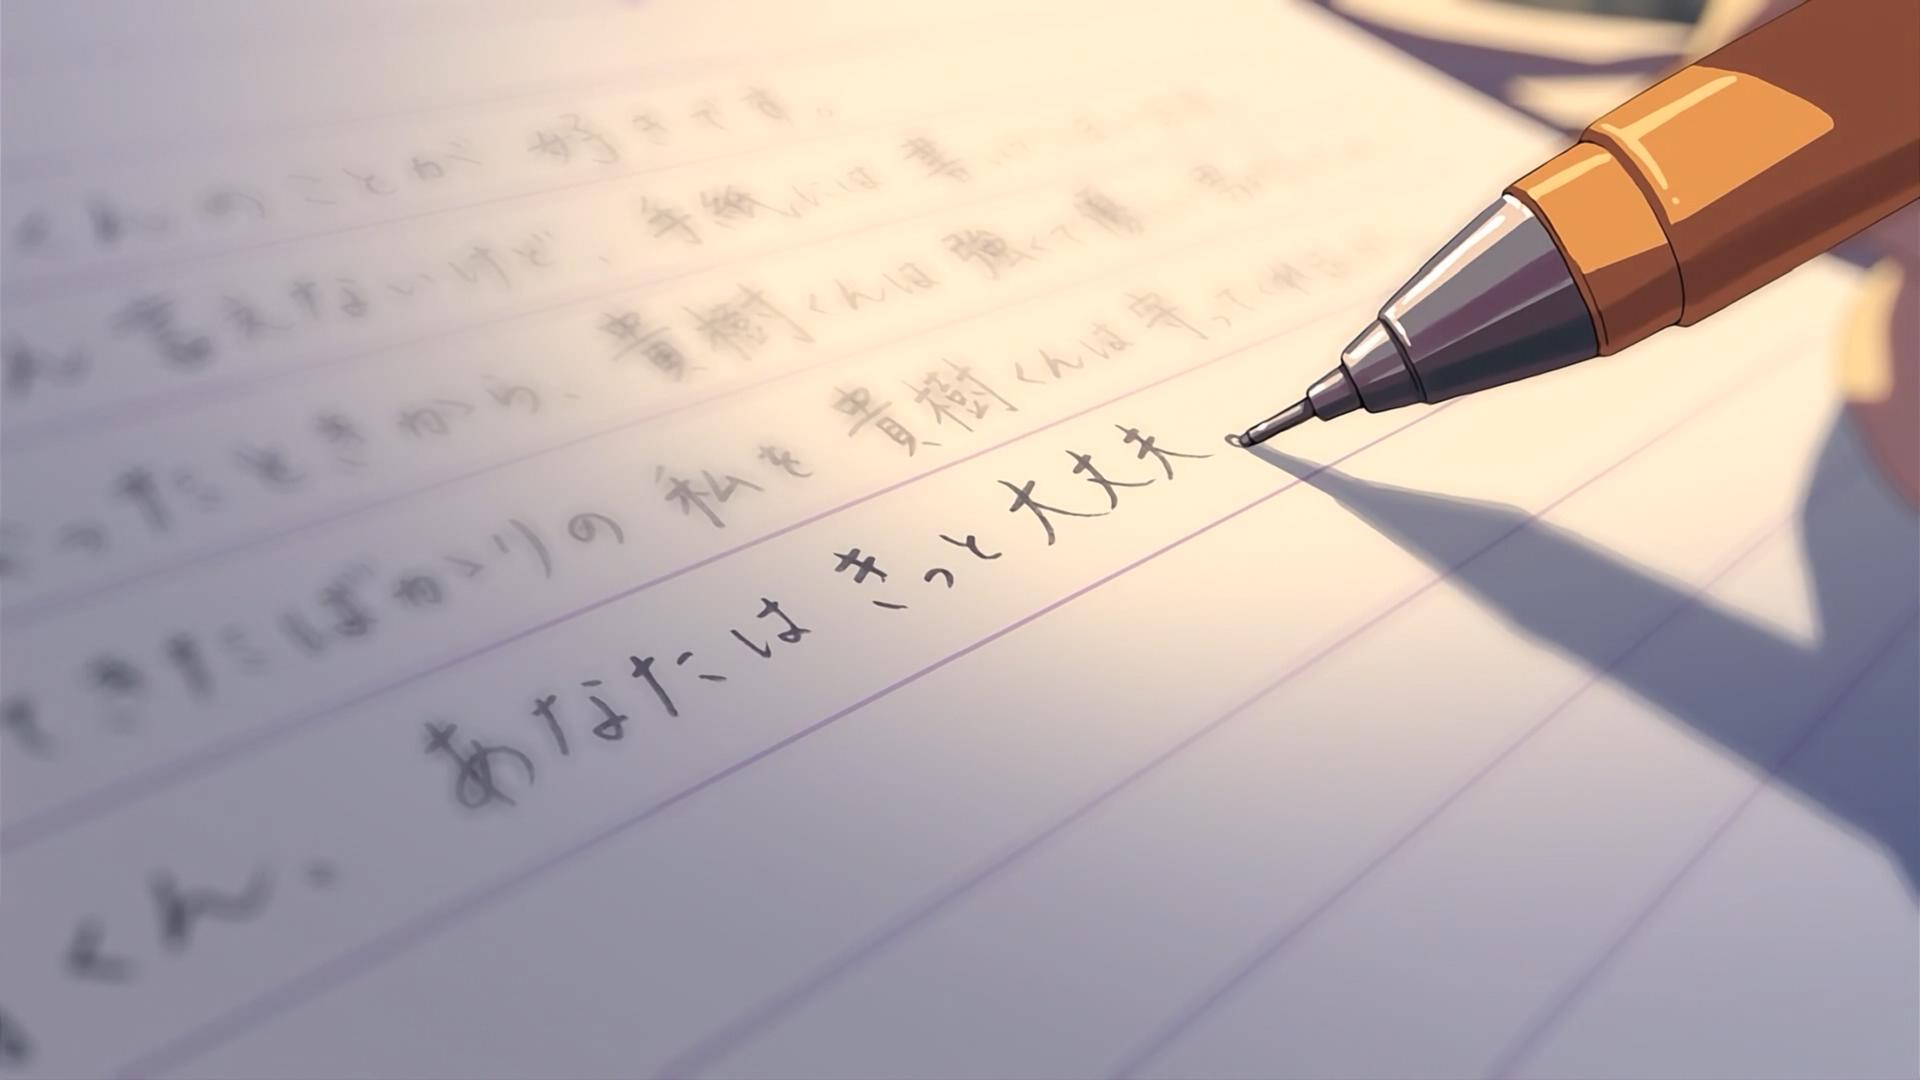 くんのことが 好きです。
ん 言えないけど、手紙には 書
ったときから、貴樹くんは 強くて優
てきたばかりの 私を 貴樹くんは 守ってくれ
くん。 あなたは きっと大丈夫